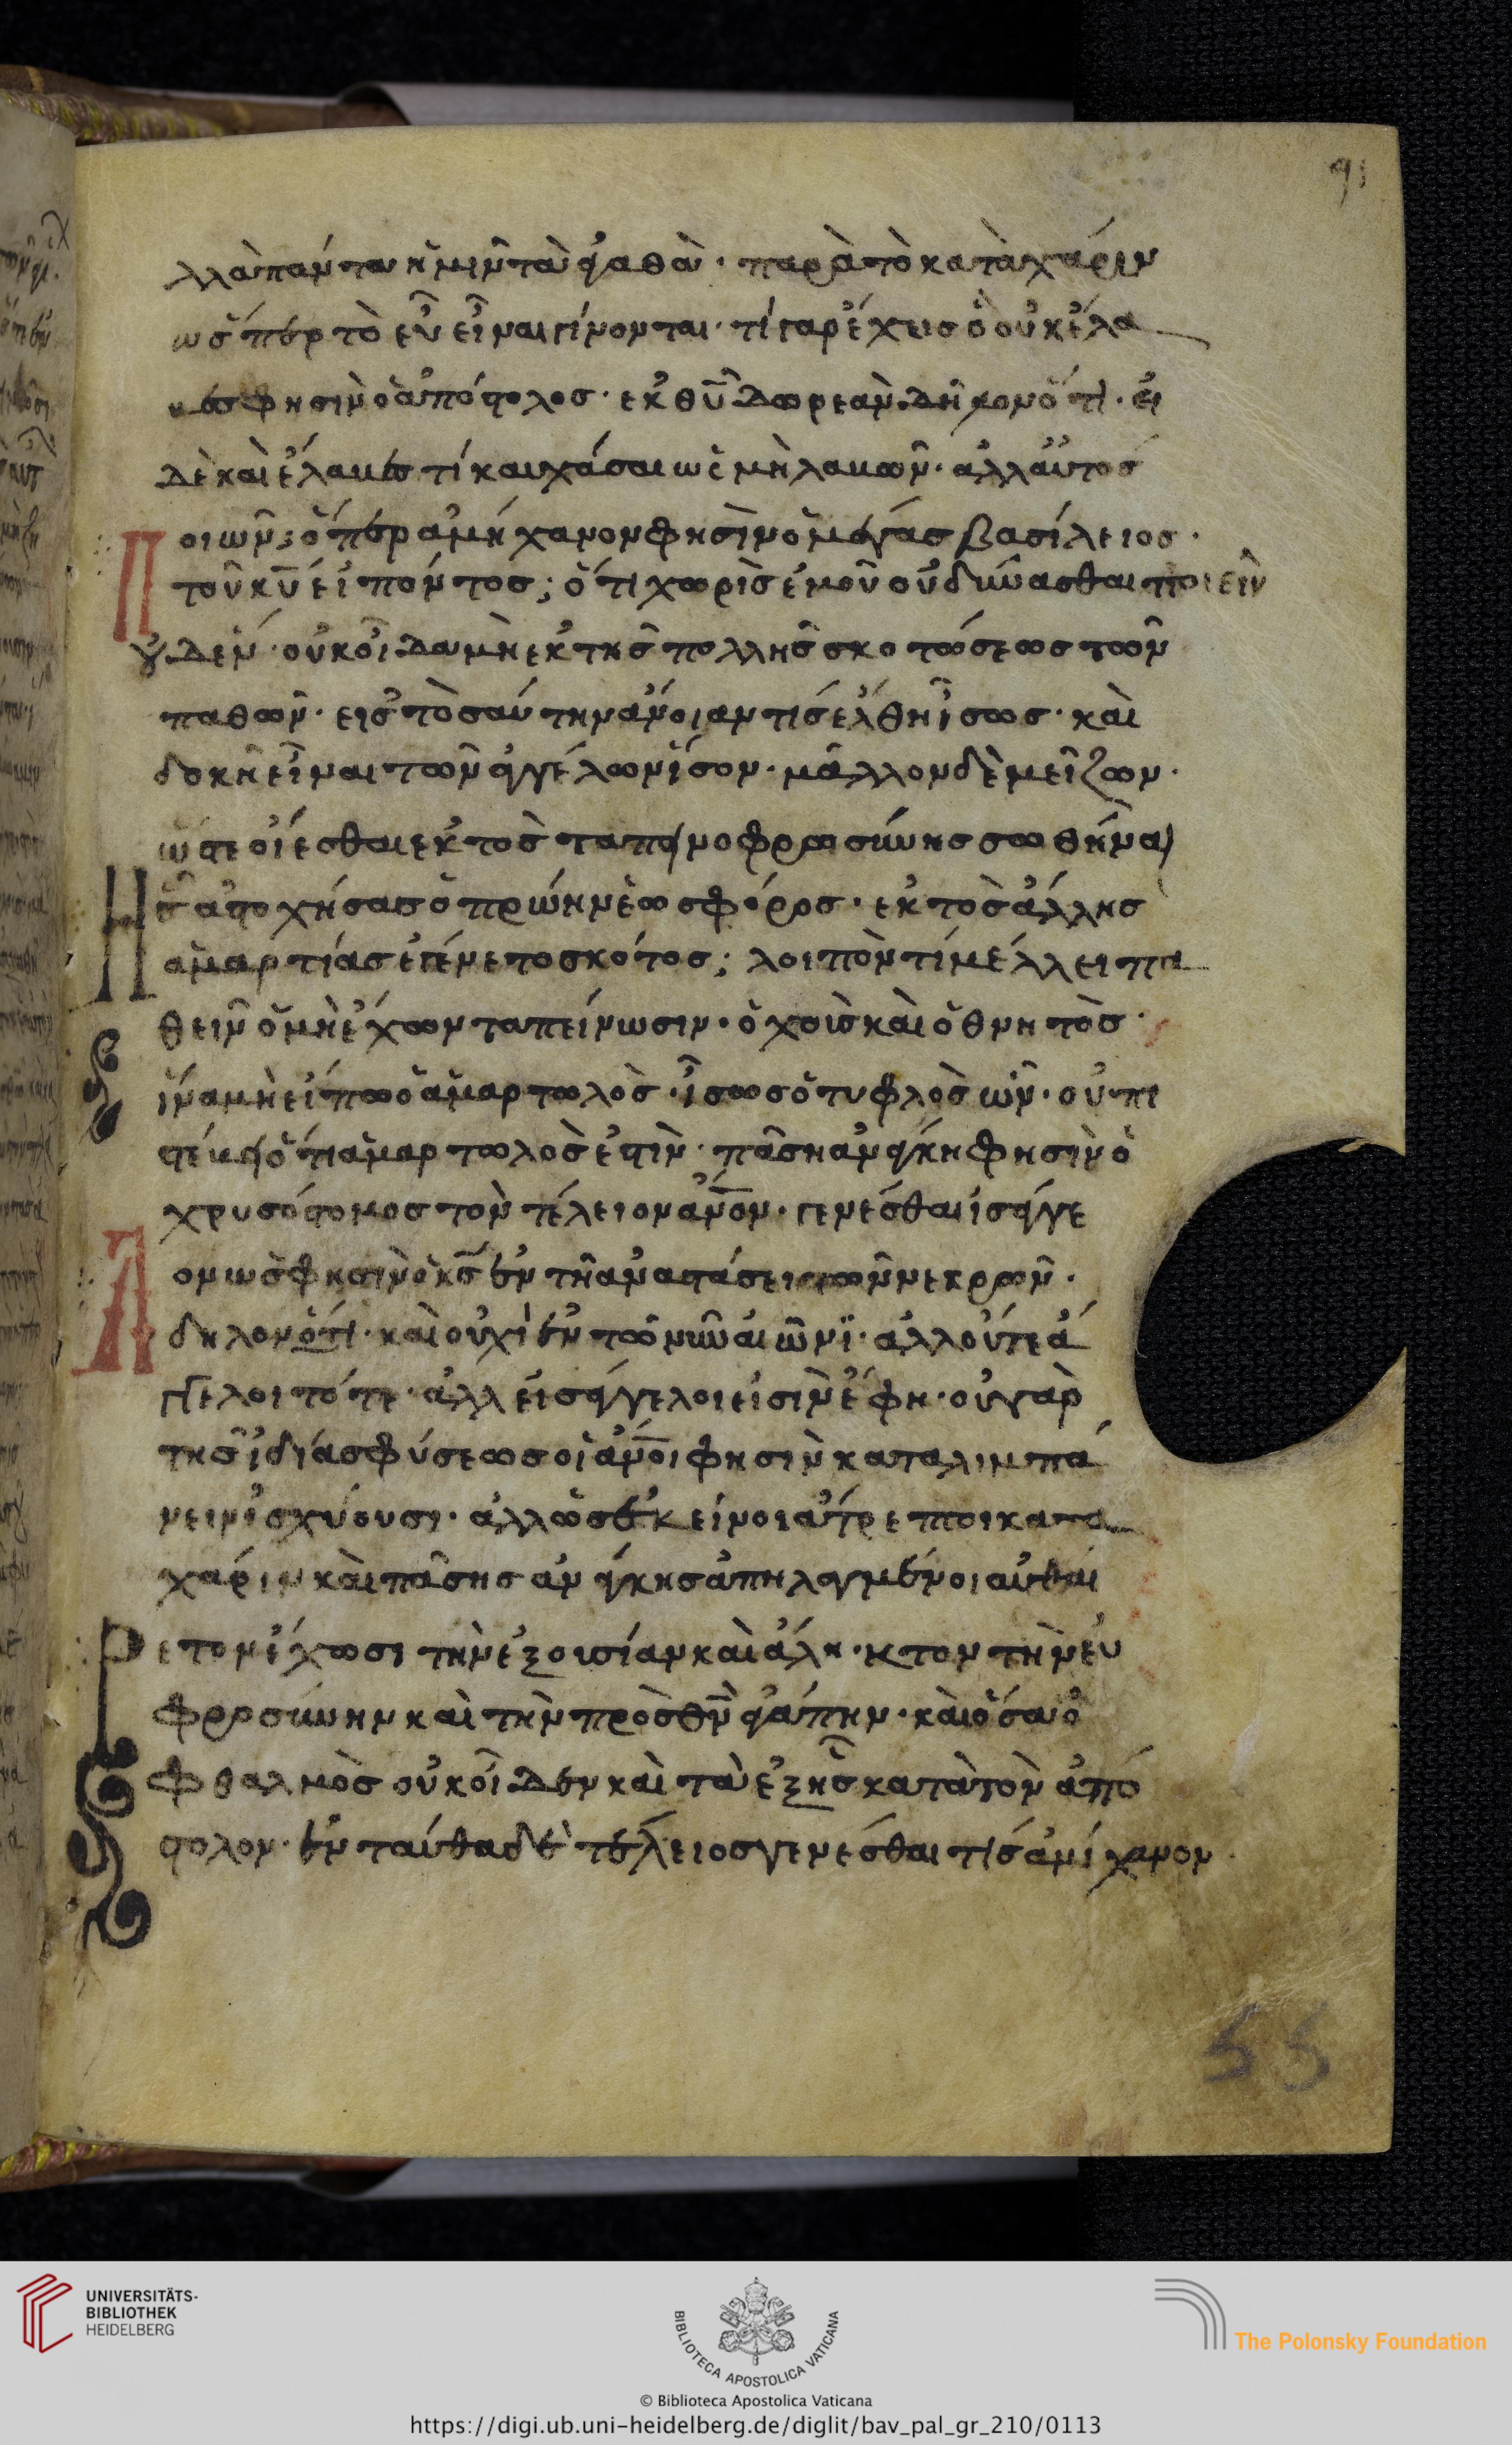 91
λλὰ πάντα ἡμῖν τὰ ἀγαθὰ· παρὰ τὸ κατὰ χάριν
ὥσπερ τὸ εὖ εἶναι γίνονται· τί γὰρ ἔχεις ὃ οὐκ ἔλα
βες φησὶν ὁ ἀπόστολος· ἐκ θυ̅ δωρεὰν δηλονότι· εἰ
δὲ καὶ ἔλαβες τί καυχᾶσαι ὡς μὴ λαβών· ἀλλ αὐτὸς
οιων; ὅπερ ἀμήχανον φησὶν ὁ μέγας βασίλειος·
Τοῦ κυ̅ εἰπόντος; ὅτι χωρὶς ἐμοῦ οὐ δύνασθαι ποιεῖν
οὐδέν· οὐκ οἶδα μὴ ἐκ τῆς πολλῆς σκοτώσεως τῶν
παθῶν· εἰς τοσαύτην ἄνοιαν τίς ἔλθῃ ἴσως· καὶ
δοκῇ εἶναι τῶν ἀγγέλων ἴσον· μᾶλλον δὲ μεῖζων·
ὥστε οἴεσθαι ἐκτὸς ταπεινοφρωσύνης σωθῆναι
Ἧς ἀστοχήσας ὁ πρώην ἑωσφόρος· ἐκτὸς ἄλλης
ἁμαρτίας ἐγένετο σκότος; λοιπὸν τί μέλλει πα
θεῖν ὁ μὴ ἔχων ταπείνωσιν· ὁ χοῦς καὶ ὁ θνητὸς·
ἵνα μὴ εἴπω ὁ ἁμαρτωλὸς· ἴσως ὁ τυφλὸς ὢν· οὐ πι
στεύει ὅτι ἁμαρτωλὸς ἐστὶν· πᾶση ἀνάγκη φησὶν ὁ
χρυσόστομος τὸν τέλειον ἀνο̅ν· γενέσθαι ἰσάγγε
Λον ὡς φησὶν ὁ κς̅ ἐν τῇ ἀναστάσει τῶν νεκρῶν·
δηλονότι· καὶ οὐχὶ ἐν τῷ νῦν αἰῶνϊ· ἀλλ οὔτε ἄ
γγελοι τότε· ἀλλ εἰσάγγελοι εἰσὶν ἔφη· οὐ γὰρ
τῆς ἰδίας φύσεως οἱ ἀνο̅ι φησὶν καταλιμπά
νειν ἰσχύουσι· ἀλλ ὡς ἐκεῖνοι ἄτρεπτοι κατὰ
χάριν καὶ πάσης ἀνάγκης ἀπηλαγμένοι αὐθαι
Ρετον ἔχωσι τὴν ἐξουσίαν καὶ ἄληκτον τὴν εὐ
φροσύνην καὶ τὴν πρὸς θν̅ ἀγάπην· καὶ ὅσα ὀ
φθαλμὸς οὐκ οἶδεν καὶ τὰ ἑξῆς κατὰ τὸν ἀπό
στολον· ἐνταύθα δὲ τέλειος γενέσθαι τίς ἀμίχανον
55
UNIVERSITÄTS-
BIBLIOTHEK
HEIDELBERG
BIBLIOTECA APOSTOLICA VATICANA
The Polonsky Foundation
© Biblioteca Apostolica Vaticana
https://digi.ub.uni-heidelberg.de/diglit/bav_pal_gr_210/0113